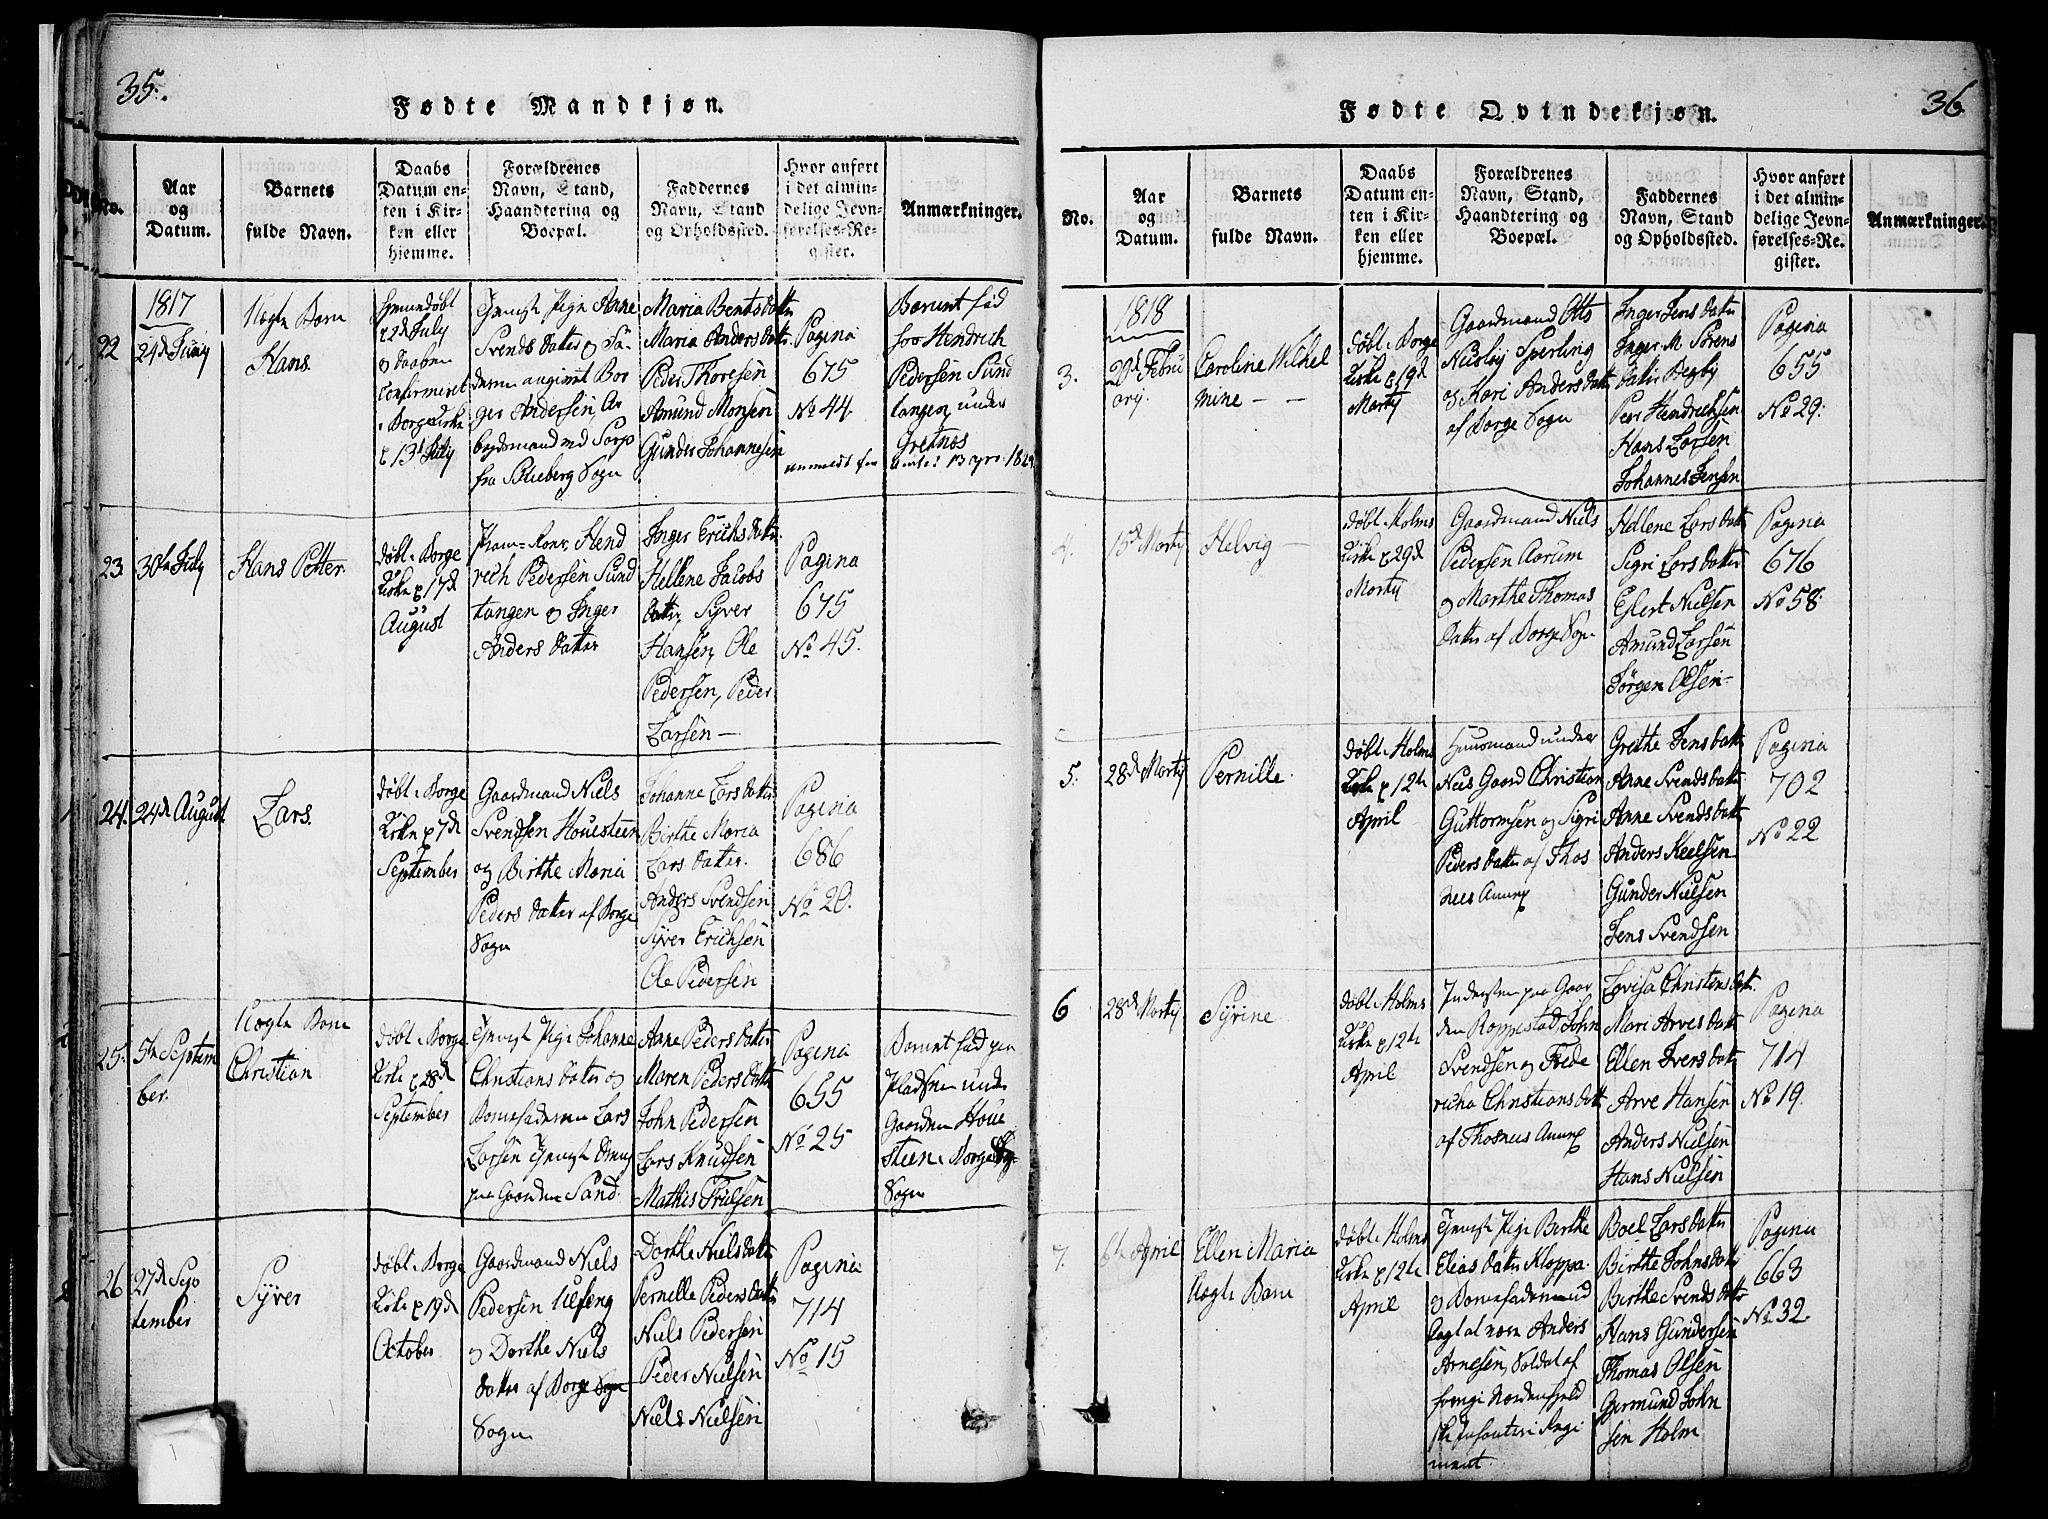 35.
Fødte Mandkjøn.
No.
Aar
og
Datum.
Barnets
fulde Navn.
Daabs
Datum en-
ten i Kir-
ken eller
hjemme.
Forældrenes
Navn, Stand,
Haandtering og
Boepæl.
Faddernes
Navn, Stand
og Opholdssted.
Hvor anført
i det almin-
delige Jevn-
førelses-Re-
gister.
Anmærkninger.
22
1817
24d Juny
Uægte Barn
Hans.
hjemmedøbt
22d July
og Daaben
confirmeret
i Borge Kirke
13d July
Ugivt Pige Anne
Svends datter og Fa-
deren angivet Bor
ger Andersen, Ar
fra Sogn
Maria Bentsdatter
Maria Andersdatter
Peder Thoresen
Amund Monsen
Gunder Johannesen
Pagina
675
No 44.
anmeldt
Barnet fød
hos Hendrich
Pedersen Sund
tangen under
Grefnes
23
30te July
Hans Petter
døbt i Borge
Kirke 17d
August
Hend
rich Pedersen Sund
tangen og Inger
Anders datter
Inger Erichs datter
Hellene Jacobs
datter, Syver
Hansen, Ole
Pedersen, Peder
Larsen —
Pagina
675
No 45.
24.
24d August
Lars.
døbt i Borge
Kirke 7d
September
Gaardmand Niels
Svendsen Houesteen
og Birthe Maria
Peders datter af Borge
Sogn
Johanne Lars datter
Birthe Maria
Lars datter.
Anders Svendsen
Syver Erichsen
Ole Pedersen
Pagina
686
No 20.
25.
5te Septem
ber.
Uægte Barn
Christian
døbt i Borge
Kirke 28d
September
Ugivt Pige Johanne
Christians datter og
Barnefaderen Lars
Larsen Ugivt
paa Gaarden Sand.
Anne Peders datter
Maren Peders datter
John Pedersen
Lars Knudsen
Mathis Trulsen
Pagina
655
No 25
Barnet fød paa
Pladsen under
Gaarden Houe
steen i Borge
Sogn
26
27d Sep
tember
Syver
døbt i Borge
Kirke 19d
October
Gaardmand Niels
Pedersen Ulfeng
og Dorthe Niels
datter af Borge Sogn
Sogn
Dorthe Niels datter
Pernelle Peders datter
Niels Pedersen
Peder Nielsen
Niels Nielsen
Pagina
714
No 15
36
Fødte Qvindekjøn.
No.
Aar
og
Datum.
Barnets
fulde Navn.
Daabs
Datum en-
ten i Kir-
ken eller
hjemme.
Forældrenes
Navn, Stand,
Haandtering og
Boepæl.
Faddernes
Navn, Stand
og Opholdssted.
Hvor anført
i det almin-
delige Jevn-
førelses-Re-
gister.
Anmærkninger.
3.
1818
20d Febru
ary.
Caroline Wilhel
mine — —
døbt i Borge
Kirke 19d
Marty
Gaardmand Otto
Nicolay Sperling
og Kari Anders datter
af Borge Sogn
Inger Jens datter
Inger M Sørens
datter Begby
Peer Hendrichsen
Hans Larsen
Johannes Jensen
Pagina
655
No 29.
4.
15d Marty
Helvig —
døbt i Holms
Kirke 29d
Marty
Gaardmand Niels
Pedersen Aorum
og Marthe Thomas
datter af Borge Sogn
Hellene Lars datter
Sigri Lars datter
Eylert Nielsen
Amund Larsen
Jörgen Olsen —
Pagina
676
No 58.
5.
28d Marty
Pernille.
døbt i Holms
Kirke 12te
April
Huusmand under
Nees Gaard Christian
Guttormsen og Sigri
Peders datter af Thos
nees Annex
Grethe Jens datter
Anne Svends datter
Anne Svends datter
Anders Keelsen
Gunder Nielsen
Jens Svendsen
Pagina
702
No 22
6
28d Marty
Syrine
døbt i Holms
Kirke 12te
April
Inderster paa Gaar
den Roppestad John
Svendsen og Frede
richa Christians datter
af Thosnees Annex
Lovisa Christens datter
Mari Arves datter
Ellen Ivers datter
Arve Hansen
Anders Nielsen
Hans Nielsen
Pagina
714
No 19.
7.
6te April
Ellen Maria
Uægte Barn
døbt i Holms
Kirke 12te
April
Ugivt Pige Birthe
Elias datter Kloppa
og Barnefaderen ud
lagt at være Anders
Arnesen, Soldat af
Nordenfjeld
ske Infanteri Regi
ment.
Boel Lars datter
Birthe Johns datter
Birthe Svends datter
Hans Gundersen
Thomas Olsen
Germund John
sen Holm
Pagina
663
No 32.